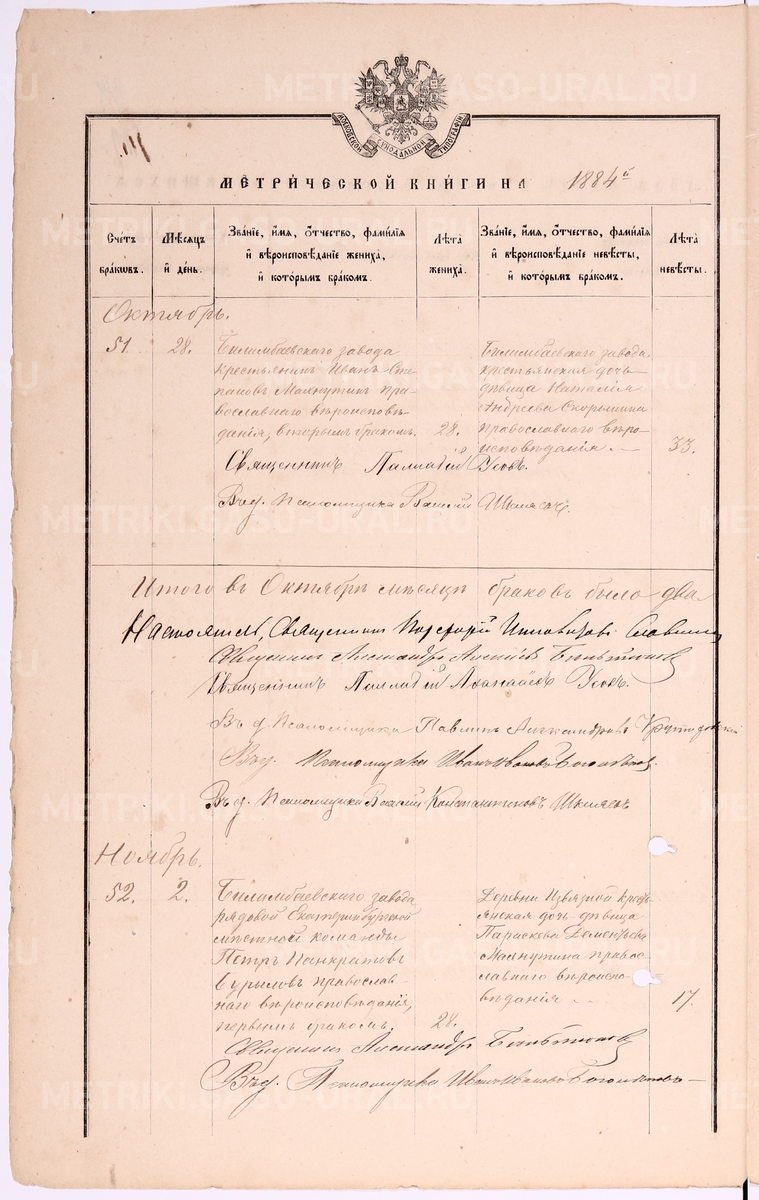 МОСКОВСКОЙ СѴНОДАЛЬНОЙ ТИПОГРАФІИ
МЕТРИЧЕСКОЙ КНИГИ НА 1884й
Счетъ браковъ.
Мѣсяцъ и день.
Званіе, имя, отчество, фамилія и вѣроисповѣданіе жениха, и которымъ бракомъ.
Лѣта жениха.
Званіе, имя, отчество, фамилія и вѣроисповѣданіе невѣсты, и которымъ бракомъ.
Лѣта невѣсты.
Октябрь.
51. 28.
Билимбаевскаго завода
крестьянинъ Иванъ Сте-
пановъ Махнутинъ пра-
вославнаго вѣроисповѣ-
данія, вторымъ бракомъ.
28.
Билимбаевскаго завода
крестьянская дочь
дѣвица Наталія
Андреева Скорынина
православнаго вѣро-
исповѣданія. —
33.
Священникъ Палладій Усовъ.
В. д. Псаломщика Василій
Итого въ Октябрѣ мѣсяцѣ браковъ было два
Настоятель, Священникъ
Священникъ Александръ
Священникъ Палладій Аѳанасіевъ Усовъ.
Въ д. Псаломщика Павлинъ Александровъ
В. д. Псаломщика Иванъ Ивановъ
Въ д. Псаломщика Василій Константиновъ
Ноябрь.
52. 2.
Билимбаевскаго завода
рядовой Екатеринбургской
мѣстной команды
Петръ Панкратовъ
Бурыловъ православ-
наго вѣроисповѣданія,
первымъ бракомъ.
28.
Деревни Извязной крестъ-
янская дочь дѣвица
Параскева Дементьева
Махнутина правос-
лавнаго вѣроиспо-
вѣданія —
17.
Священникъ Александръ
В. д. Псаломщика Иванъ Ивановъ
METRIKI.GASO-URAL.RU